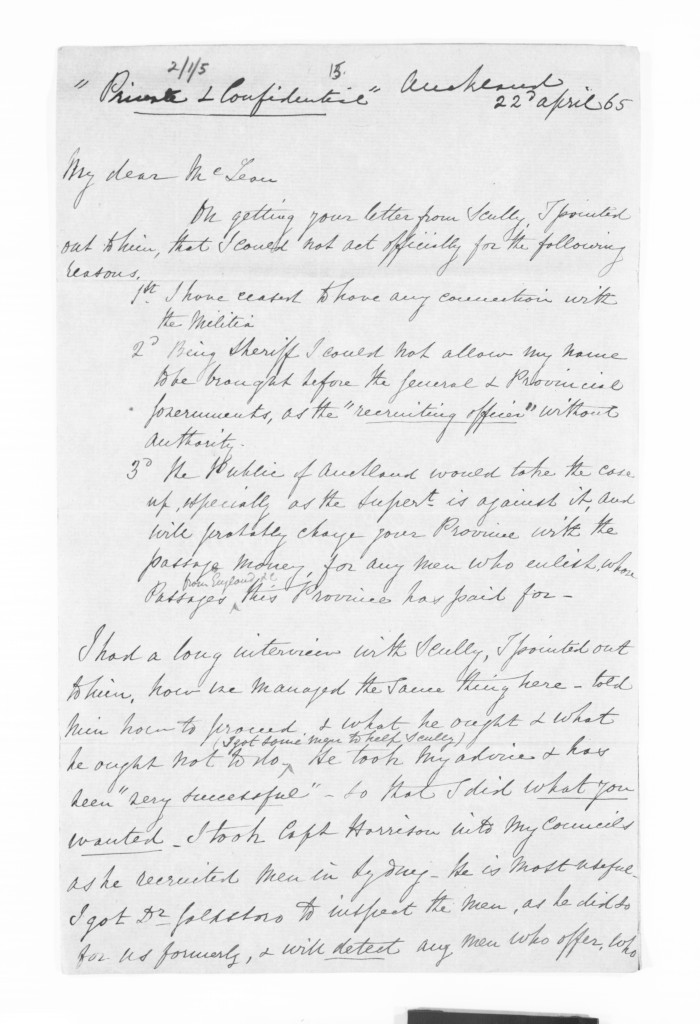 2/1/5 15.
"Private & Confidential" Auckland
22d april 65
My dear Mc Lean
On getting your letter from Scully, I pointed
out to him, that I could not act officially for the following
reasons.
1st. I have ceased to have any connection with
the Militia
2d Being Sheriff I could not allow my name
to be brought before the General & Provincial
Governments, as the "recruiting officer" without
authority.
3d The Public of Auckland would take the case
up, especially as the Supert. is against it, and
will probably charge your Province with the
passage money, for any men who enlist, whose
from England &c
Passages ^ this Province has paid for -
I had a long interview with Scully, I pointed out
to him, how we managed the same thing here - told
him how to proceed & what he ought & what
(I got some men to help Scully)
he ought not to do ^ He took my advice & has
been "very successful" - so that I did what you
wanted - I took Capt Harrison into my Councils
as he recruited men in Sydney - He is most useful -
I got Dr. Goldsboro to inspect the men, as he did so
for us formerly, & will detect any men who offer, who